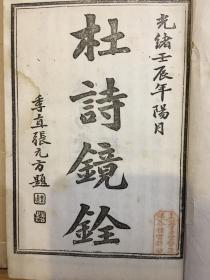 光緒壬辰年陽月
杜詩鏡銓
季直張元方題